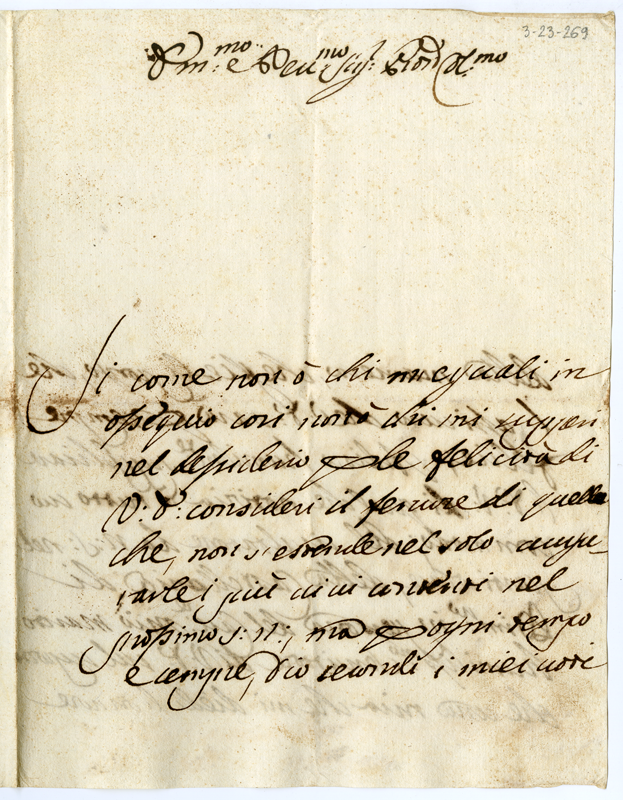 3-23-269
Em.mo e Reu.mo Sig.r Pron Col.mo
Si come non ò chi m'eguali in
ossequio cosi non ò chi mi superi
nel dessiderio p le felicità di
V: E: consideri il feruore di quella
che, non s'estende nel solo augu-
rarle i più uiui contenti nel
prossimo s: N:, ma p ogni tempo
e cempre, Dio secondi i miei uoti